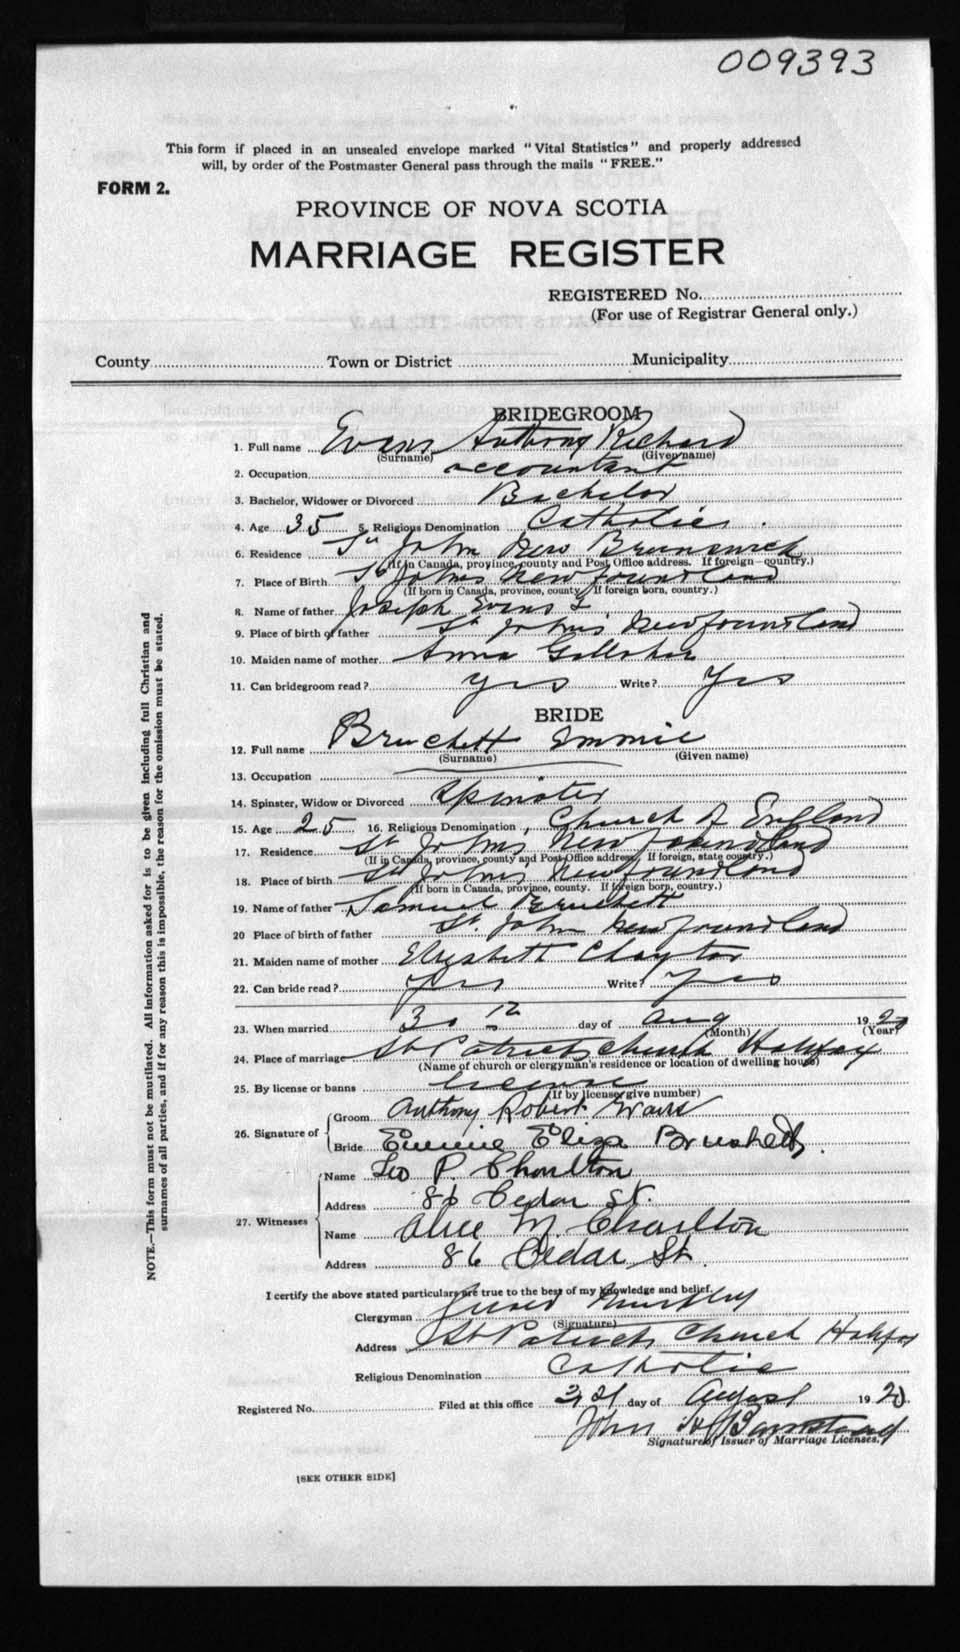 009393
This form if placed in an unsealed envelope marked "Vital Statistics" and properly addressed
will, by order of the Postmaster General pass through the mails "FREE."
FORM 2.
PROVINCE OF NOVA SCOTIA
MARRIAGE REGISTER
REGISTERED No.
(For use of Registrar General only.)
County Town or District Municipality
BRIDEGROOM
1. Full name Evans Anthony Richard
(Surname) (Given name)
2. Occupation accountant
3. Bachelor, Widower or Divorced Bachelor
4. Age 35 5. Religious Denomination Catholic
6. Residence St John New Brunswick
(If in Canada, province, county and Post Office address. If foreign—country.)
7. Place of Birth St Johns Newfoundland
(If born in Canada, province, county. If foreign born, country.)
8. Name of father Joseph Evans
9. Place of birth of father St Johns Newfoundland
10. Maiden name of mother Anna
11. Can bridegroom read? Yes Write? Yes
BRIDE
12. Full name Bruchett Emmie
(Surname) (Given name)
13. Occupation
14. Spinster, Widow or Divorced Spinster
15. Age 25 16. Religious Denomination Church of England
17. Residence St Johns Newfoundland
(If in Canada, province, county and Post Office address. If foreign, state country.)
18. Place of birth St Johns Newfoundland
(If born in Canada, province, county. If foreign born, country.)
19. Name of father Samuel Bruchett
20 Place of birth of father St. John Newfoundland
21. Maiden name of mother Elizabeth
22. Can bride read? Yes Write? Yes
23. When married 30th day of Aug 1920
(Month) (Year)
24. Place of marriage St Patricks Church Halifax
(Name of church or clergyman's residence or location of dwelling house)
25. By license or banns license
(If by license give number)
26. Signature of
Groom Anthony Robert Evans
Bride Emmie Eliza Brushett.
27. Witnesses
Name Leo P. Charlton
Address 86 Cedar St.
Name Alice M. Charlton
Address 86 Cedar St.
I certify the above stated particulars are true to the best of my knowledge and belief.
Clergyman Murphy
(Signature)
Address St Patricks Church Halifax
Religious Denomination Catholic
Registered No. Filed at this office day of August 1920
John
Signature of Issuer of Marriage Licenses.
[SEE OTHER SIDE]
NOTE.—This form must not be mutilated. All information asked for is to be given including full Christian and
surnames of all parties, and if for any reason this is impossible, the reason for the omission must be stated.